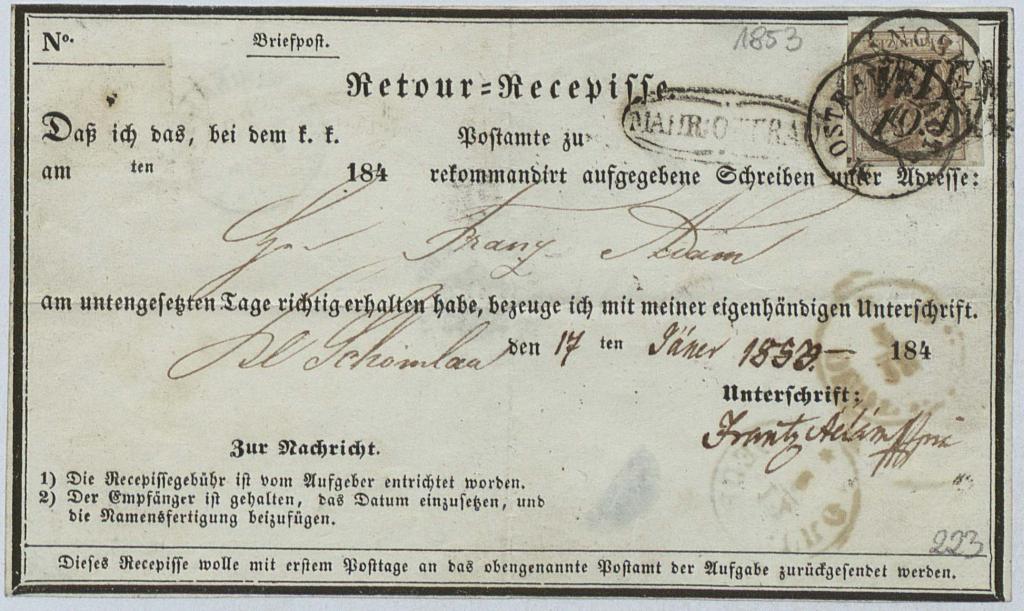 Nº.
Briefpost.
1853
Retour=Recepisse.
MÄHR: OSTRAU
Daß ich das, bei dem k. k. Postamte zu
am ten 184 rekommandirt aufgegebene Schreiben unter Adresse:
Franz Adam
am untengesetzten Tage richtig erhalten habe, bezeuge ich mit meiner eigenhändigen Unterschrift.
den 17 ten Jäner 1853 184
Unterschrift:
Frantz Adam
Zur Nachricht.
1) Die Recepissegebühr ist vom Aufgeber entrichtet worden.
2) Der Empfänger ist gehalten, das Datum einzusetzen, und
die Namensfertigung beizufügen.
223
Dieses Recepisse wolle mit erstem Posttage an das obengenannte Postamt der Aufgabe zurückgesendet werden.